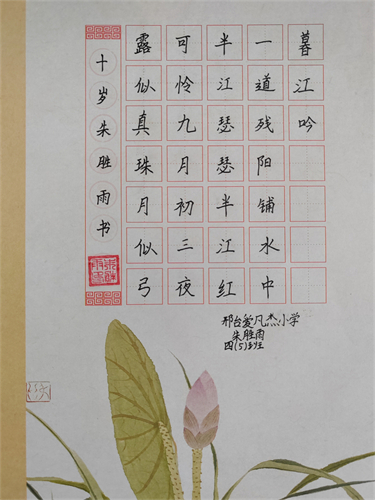 暮江吟
一道残阳铺水中
半江瑟瑟半江红
可怜九月初三夜
露似真珠月似弓
十岁朱胜雨书
邢台爱凡杰小学
朱胜雨
四(5)班